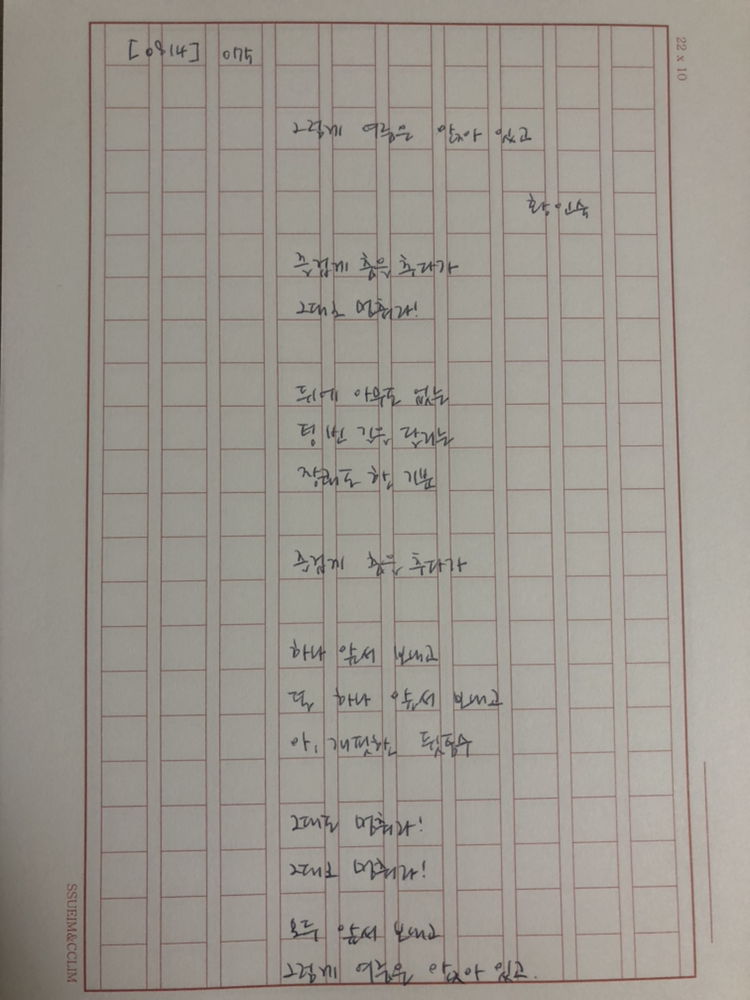 그렇게 여름은 앉아 있고
황인숙
즐겁게 춤을 추다가
그대로 멈춰라!
뒤에 아무도 없는
텅 빈 길을 달리는
한 기분
즐겁게 춤을 추다가
하나 앞서 보내고
또 하나 앞서 보내고
아,
그대로 멈춰라!
그대로 멈춰라!
모두 앞서 보내고
그렇게 여름은 앉아 있고.
22 x 10
SSUEIM&CCLIM